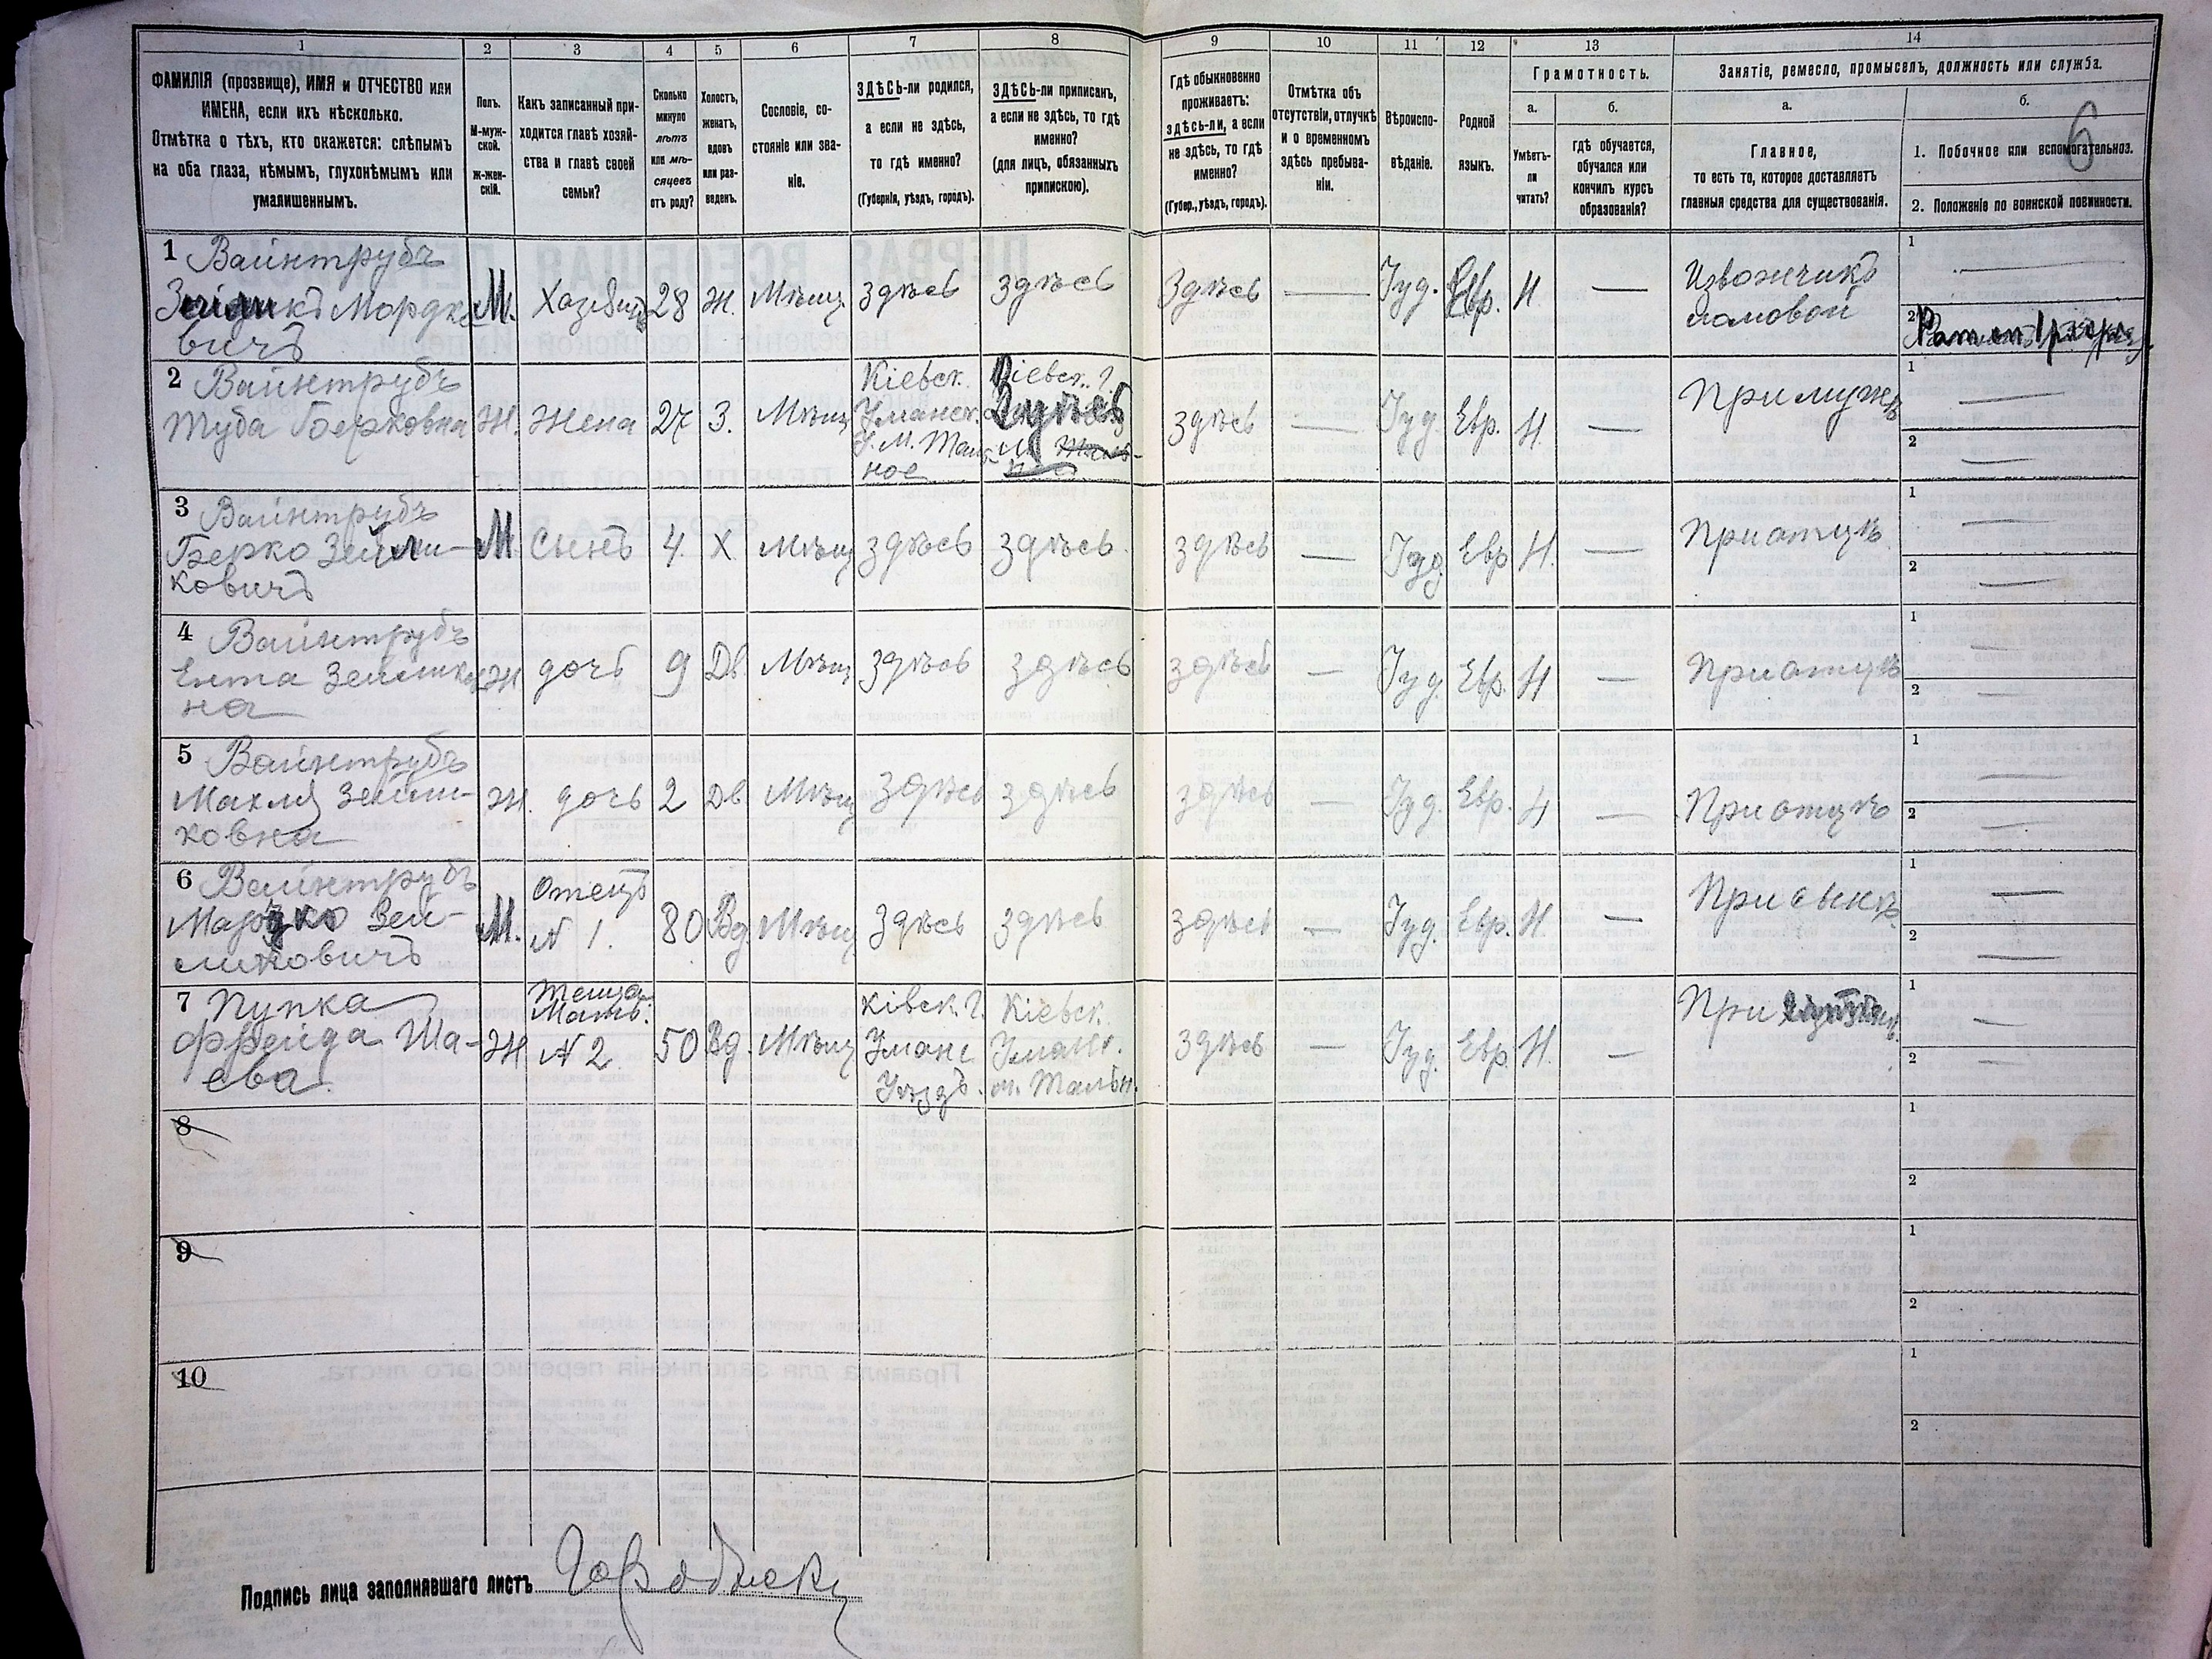 1 2 3 4 5 6 7 8 9 10 11 12 13 14
ФАМИЛІЯ (прозвище), ИМЯ и ОТЧЕСТВО или
ИМЕНА, если ихъ нѣсколько.
Отмѣтка о тѣхъ, кто окажется: слѣпымъ
на оба глаза, нѣмымъ, глухонѣмымъ или
умалишеннымъ.
Полъ.
М-муж-
ской.
ж-жен-
скій.
Какъ записанный при-
ходится главѣ хозяй-
ства и главѣ своей
семьи?
Сколько
минуло
лѣтъ
или мѣ-
сяцевъ
отъ роду?
Холостъ,
женатъ,
вдовъ
или раз-
веденъ.
Сословіе, со-
стояніе или зва-
ніе.
ЗДѢСЬ-ли родился,
а если не здѣсь,
то гдѣ именно?
(Губернія, уѣздъ, городъ).
ЗДѢСЬ-ли приписанъ,
а если не здѣсь, то гдѣ
именно?
(для лицъ, обязанныхъ
припискою).
Гдѣ обыкновенно
проживаетъ:
здѣсь-ли, а если
не здѣсь, то гдѣ
именно?
(Губер., уѣздъ, городъ).
Отмѣтка объ
отсутствіи, отлучкѣ
и о временномъ
здѣсь пребыва-
ніи.
Вѣроиспо-
вѣданіе.
Родной
языкъ.
Грамотность.
а.
Умѣетъ-
ли
читать?
б.
гдѣ обучается,
обучался или
кончилъ курсъ
образованія?
Занятіе, ремесло, промыселъ, должность или служба.
а.
Главное,
то есть то, которое доставляетъ
главныя средства для существованія.
б.
6
1. Побочное или вспомогательное.
2. Положеніе по воинской повинности.
1 Вайнтрубъ
Мордко
вичъ
М. Хазяинъ 28 Ж. Мѣщ. здѣсь здѣсь здѣсь — Іуд. Евр. Н —
Извожчикъ
ломовой
1 —
2
2 Вайнтрубъ
Туба Берковна
Ж. Жена 27 З. Мѣщ
Кіевск.
Уманск.
У. М. Таль
ное
Кіевск. г.
здѣсь — Іуд. Евр. Н. — При мужѣ
1 —
2 —
3 Вайнтрубъ
Берко Зейли-
ковичъ
М Сынъ 4 Х Мѣщ здѣсь здѣсь. здѣсь — Іуд. Евр Н. — При отцѣ
1 —
2 —
4 Вайнтрубъ
Ента Зейликов
на
Ж дочь 9 Дв Мѣщ здѣсь здѣсь здѣсь — Іуд. Евр. Н — При отцѣ
1 —
2 —
5 Вайнтрубъ
Махля Зейли-
ковна
Ж. дочь 2 Дв Мѣщ здѣсь здѣсь здѣсь — Іуд. Евр. Н — При отцѣ
1 —
2 —
6 Вайнтрубъ
Мардко Зей-
ликовичъ
М.
Отецъ
N 1.
80 Вд Мѣщ здѣсь здѣсь здѣсь — Іуд. Евр. Н. — При сынѣ
1 —
2 —
7 Пупка
Фрейда Ша-
ева.
Ж
Теща
Мать.
N 2.
50 Вд. Мѣщ
Ківск. г.
Уманс
Уѣздъ.
Кіевск.
Уманс.
м. Тальн.
здѣсь — Іуд. Евр. Н. — При
1 —
2 —
8
1
2
9
1
2
10
1
2
Подпись лица заполнявшаго листъ